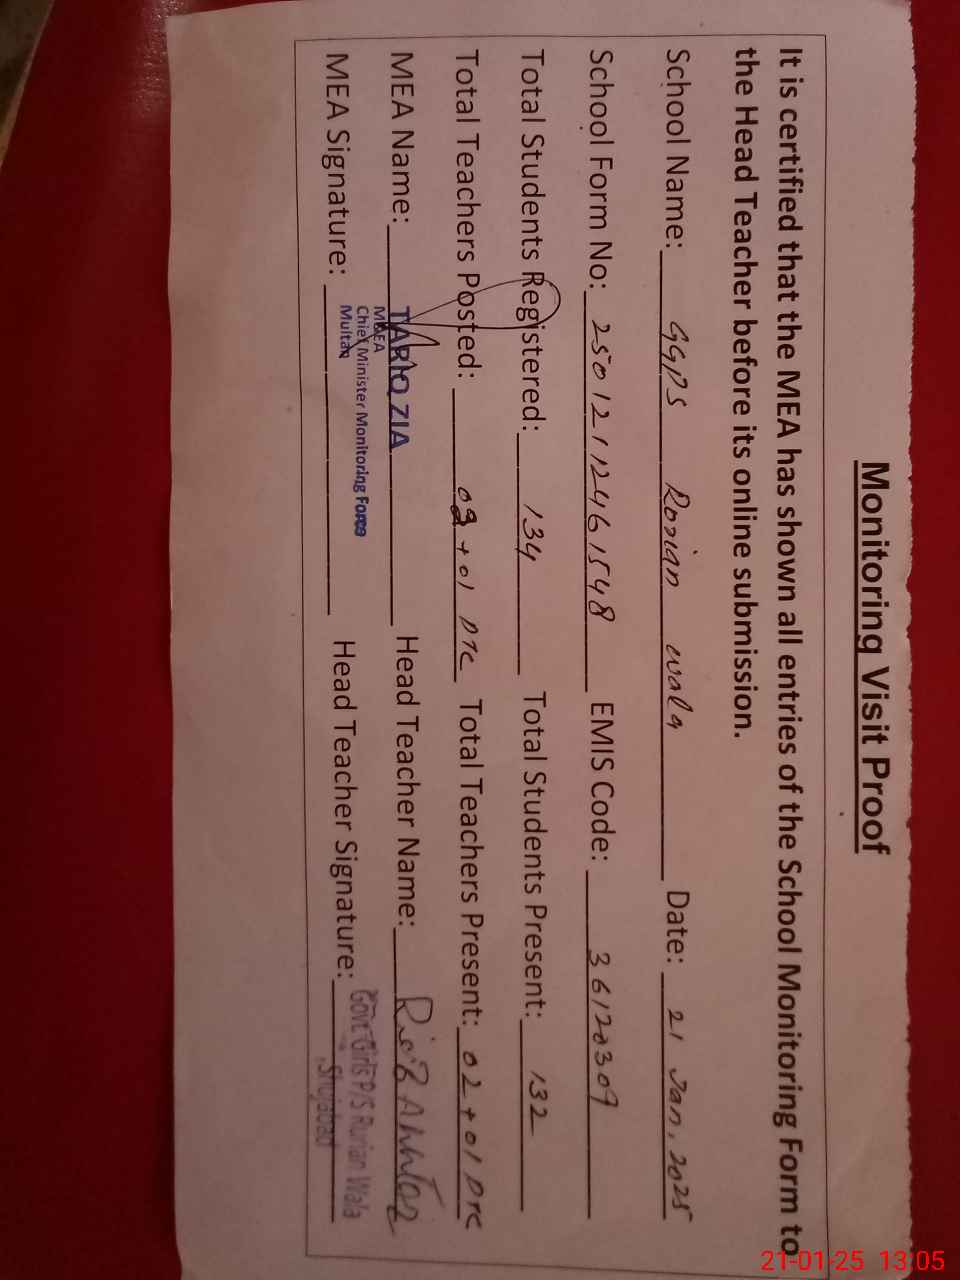 Monitoring Visit Proof
It is certified that the MEA has shown all entries of the School Monitoring Form to
the Head Teacher before its online submission.
School Name: GGPS Rorian wala Date: 21 Jan, 2025
School Form No: 25012112461548 EMIS Code: 36120309
Total Students Registered: 134 Total Students Present: 132
Total Teachers Posted: +01 PTC Total Teachers Present: 02+01 PTC
MEA Name: TARIQ ZIA Head Teacher Name:
MEA
Chief Minister Monitoring Force
Multan
MEA Signature: Head Teacher Signature:
Govt: Girls P/S Rorian Wala
Shujabad
21-01-25 13:05